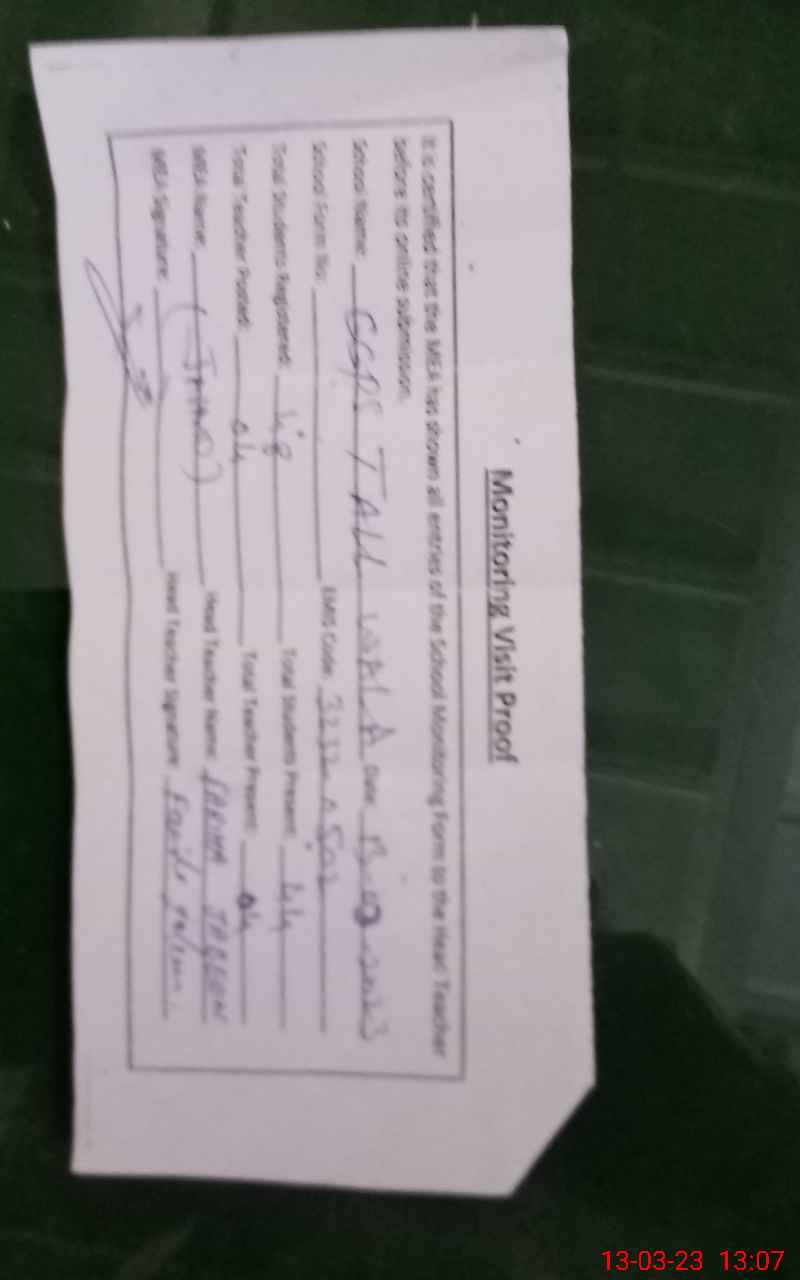 Monitoring Visit Proof
It is certified that the MEA has shown all entries of the School Monitoring Form to the Head Teacher
before its online submission.
School Name: GGPS TALL WALA Date: 13-03-2023
School Form No: EMIS Code:
Total Students Registered: 48 Total Students Present: 44
Total Teacher Posted: 04 Total Teacher Present: 04
MEA Name: Head Teacher Name:
MEA Signature: Head Teacher Signature:
13-03-23 13:07